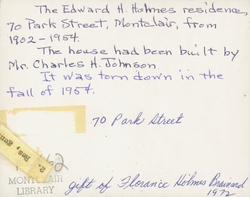 The Edward H. Holmes residence,
70 Park Street, Montclair, from
1902-1954.
The house had been built by
Mr. Charles H. Johnson.
It was torn down in the
fall of 1954.
70 Park Street
MONTCLAIR
LIBRARY
gift of Florance Holmes Brainard
1972